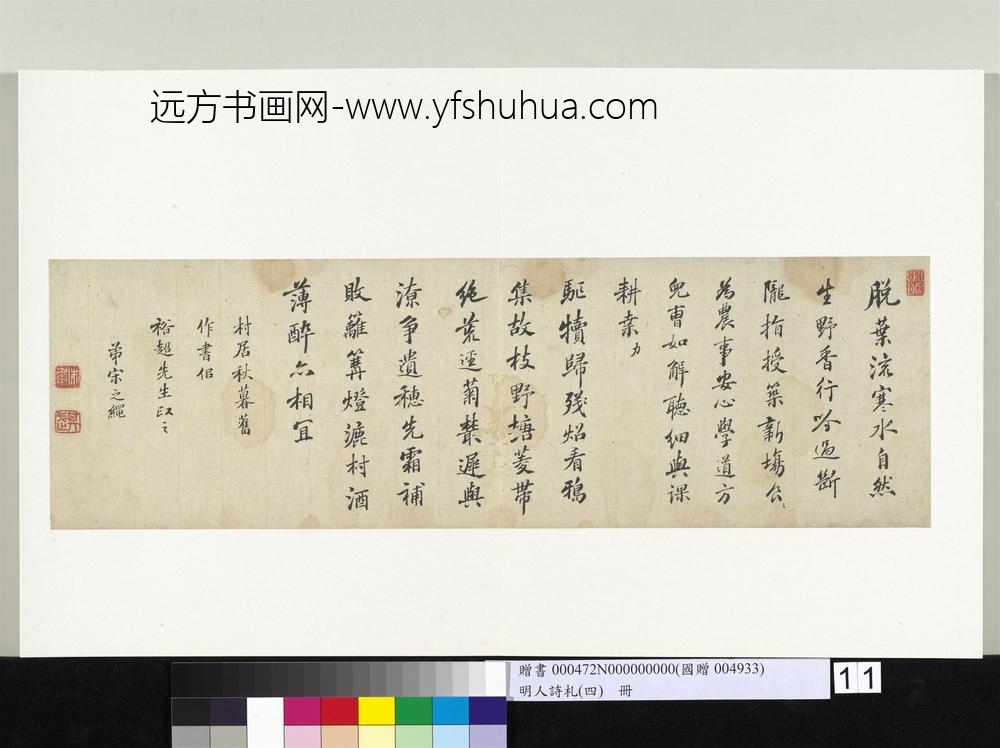 远方书画网-www.yfshuhua.com
脫葉流寒水自然
生野香行吟過斷
隴指授築新場公
為農事安心學道方
兒曹如解聽細與課
耕桑力
驅犢歸殘炤看鴉
集故枝野塘菱帶
絕荒逕菊叢遲與
潦爭遺穗先霜補
敗籬篝燈漉村酒
薄醉亦相宜
村居秋暮舊
作書似
裕超先生政之
弟宋之繩
贈書 000472N000000000(國贈 004933)
明人詩札(四) 冊
11